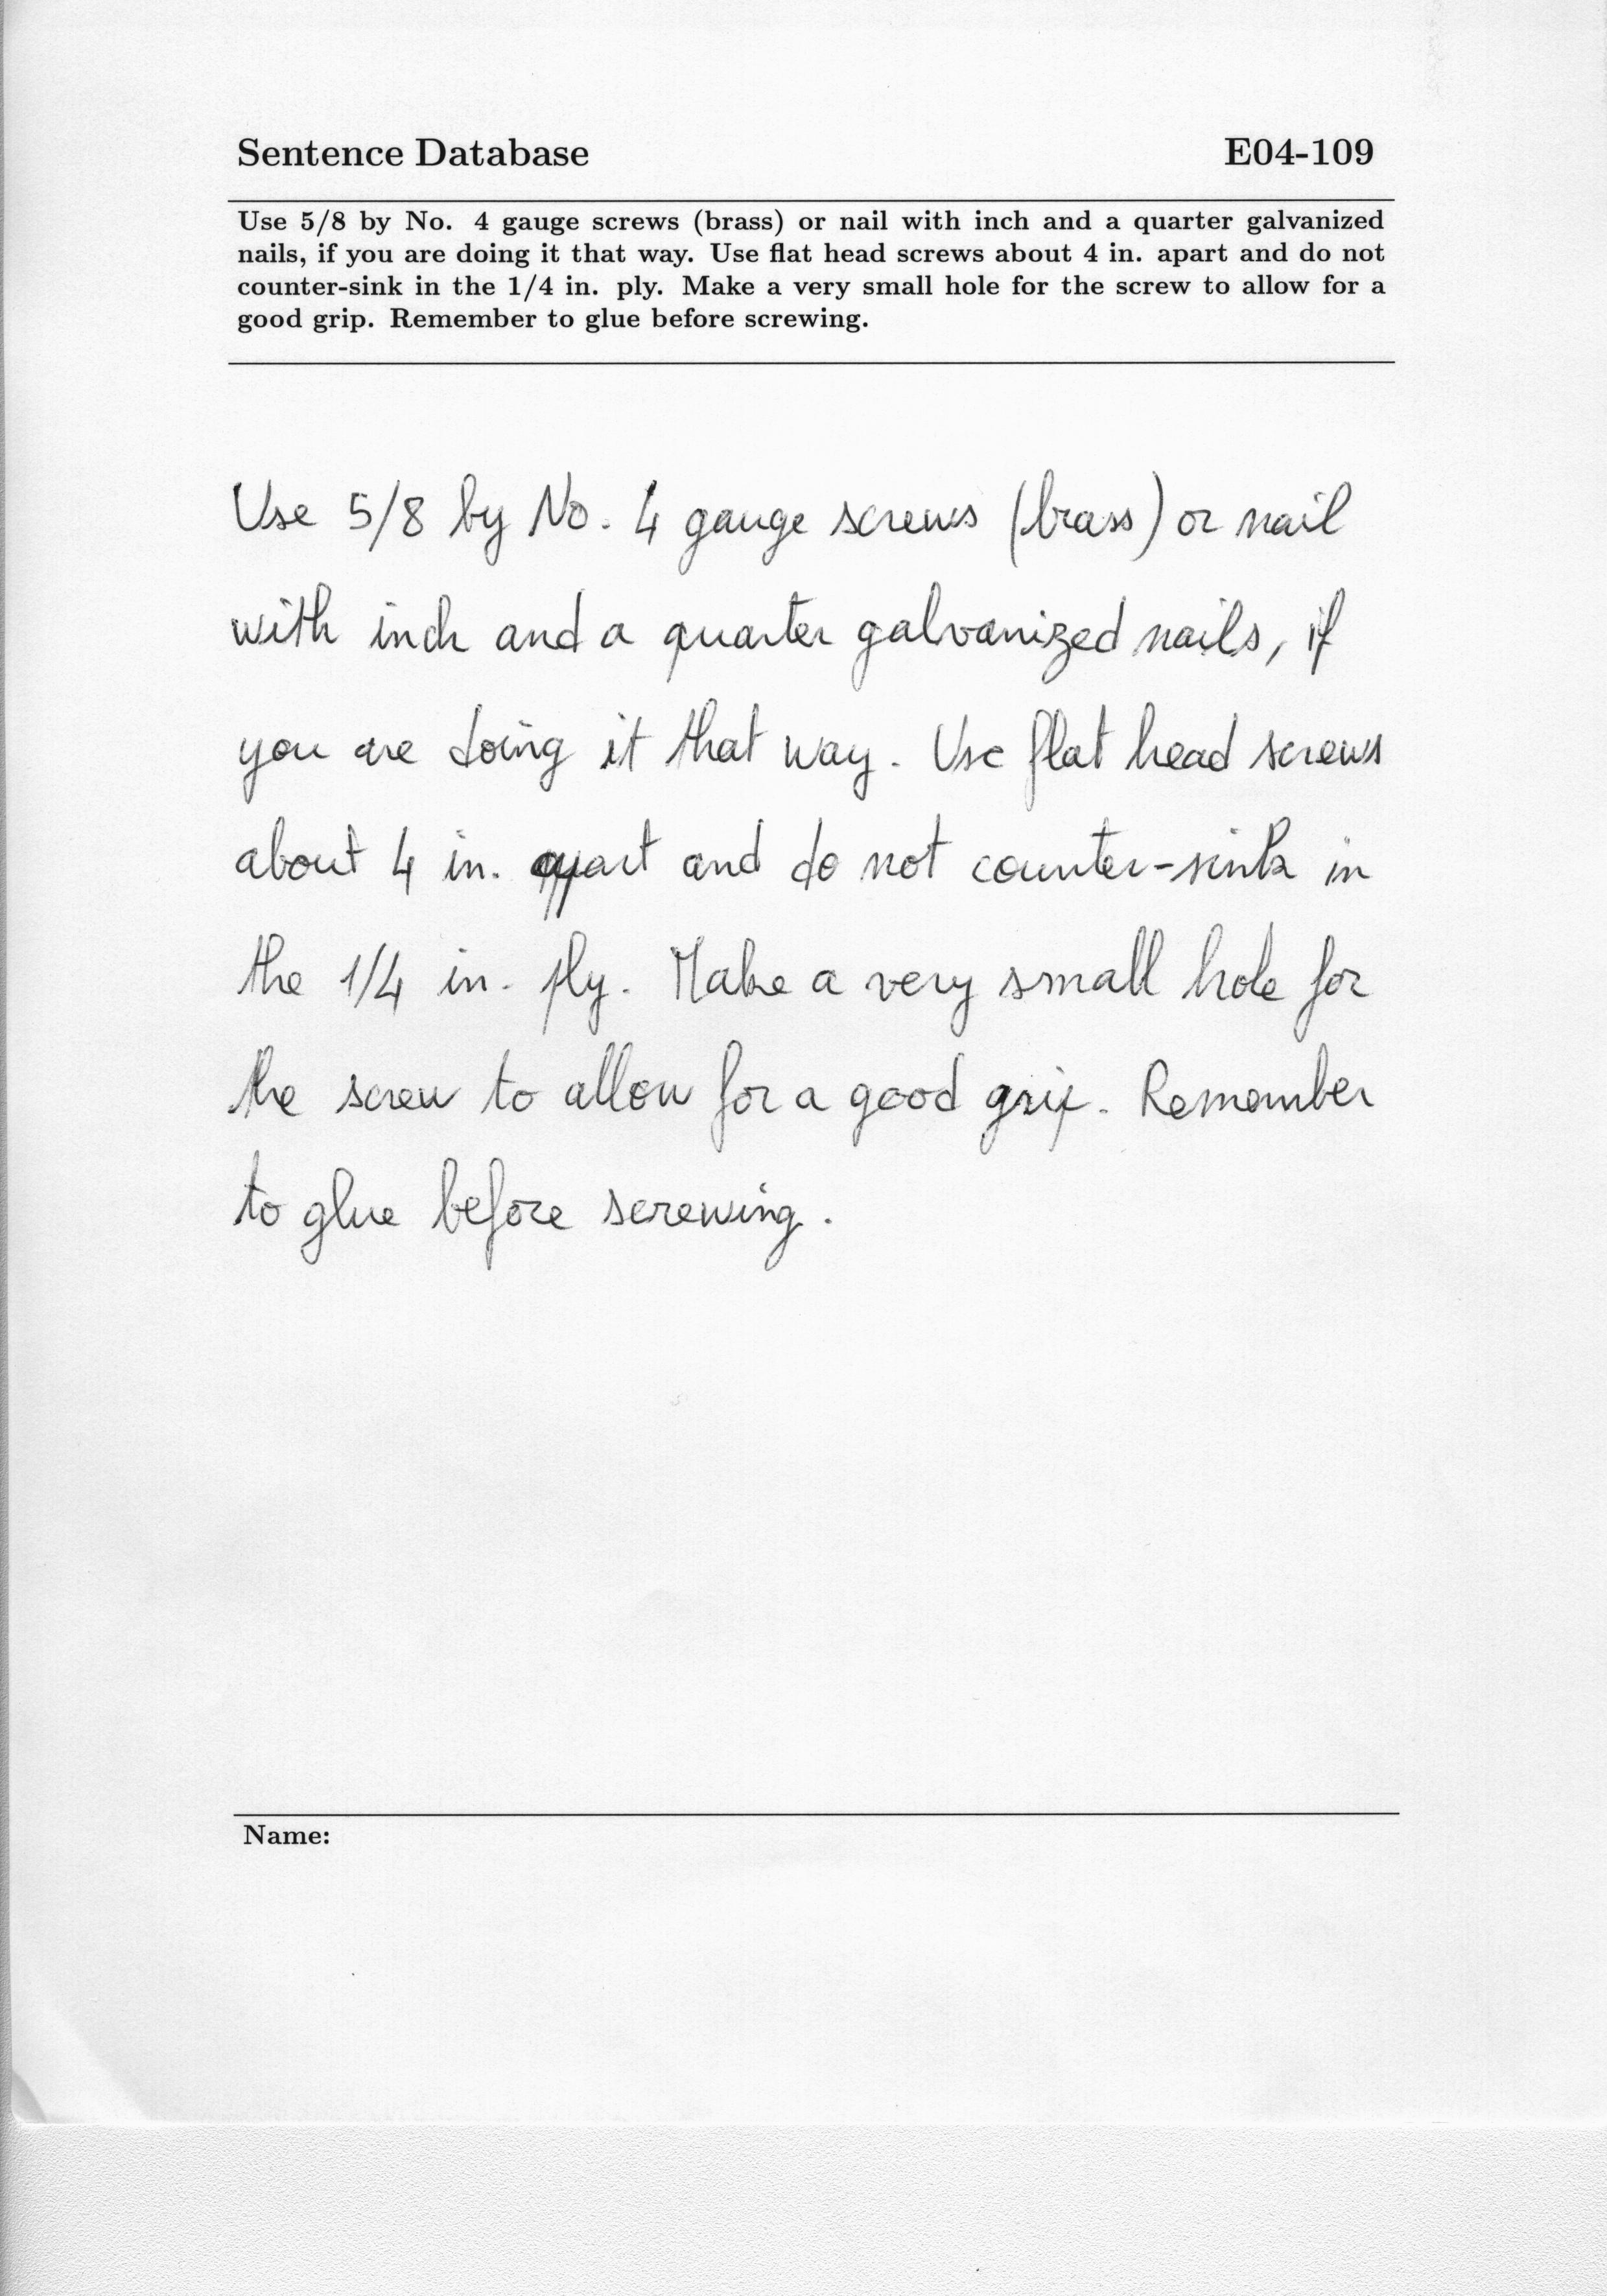 Sentence Database E04-109
Use 5/8 by No. 4 gauge screws (brass) or nail with inch and a quarter galvanized
nails, if you are doing it that way. Use flat head screws about 4 in. apart and do not
counter-sink in the 1/4 in. ply. Make a very small hole for the screw to allow for a
good grip. Remember to glue before screwing.
Use 5/8 by No. 4 gauge screws (brass) or nail
with inch and a quarter galvanized nails, if
you are doing it that way. Use flat head screws
about 4 in. apart and do not counter-sink in
the 1/4 in. ply. Make a very small hole for
the screw to allow for a good grip. Remember
to glue before screwing.
Name: